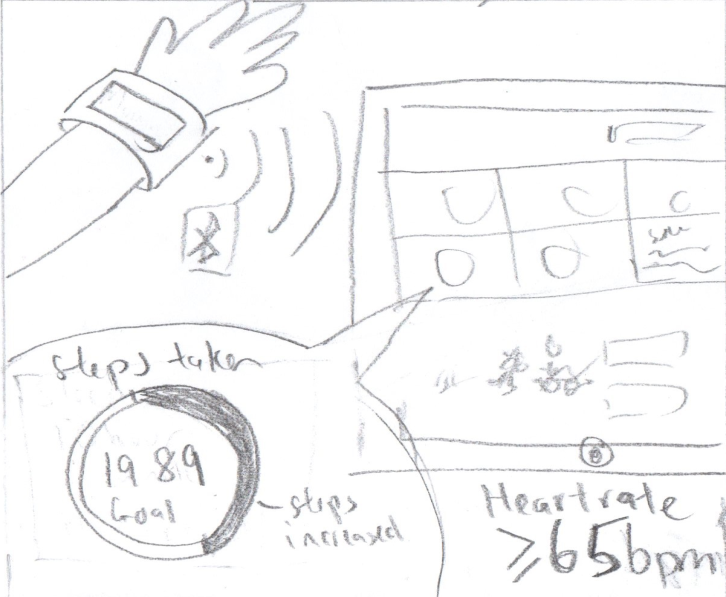 steps taken
1989
Goal
steps
increased
Heartrate
≥65bpm